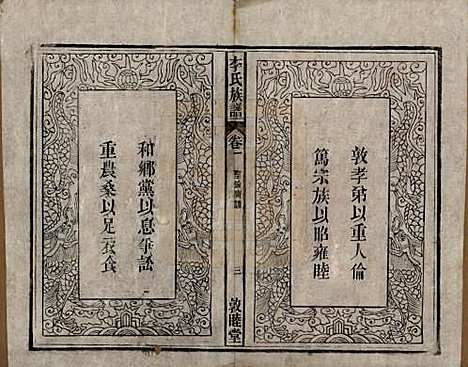 敦孝弟以重人倫
篤宗族以昭雍睦
李氏族譜
卷一
三
敦睦堂
和鄉黨以息爭訟
重農桑以足衣食